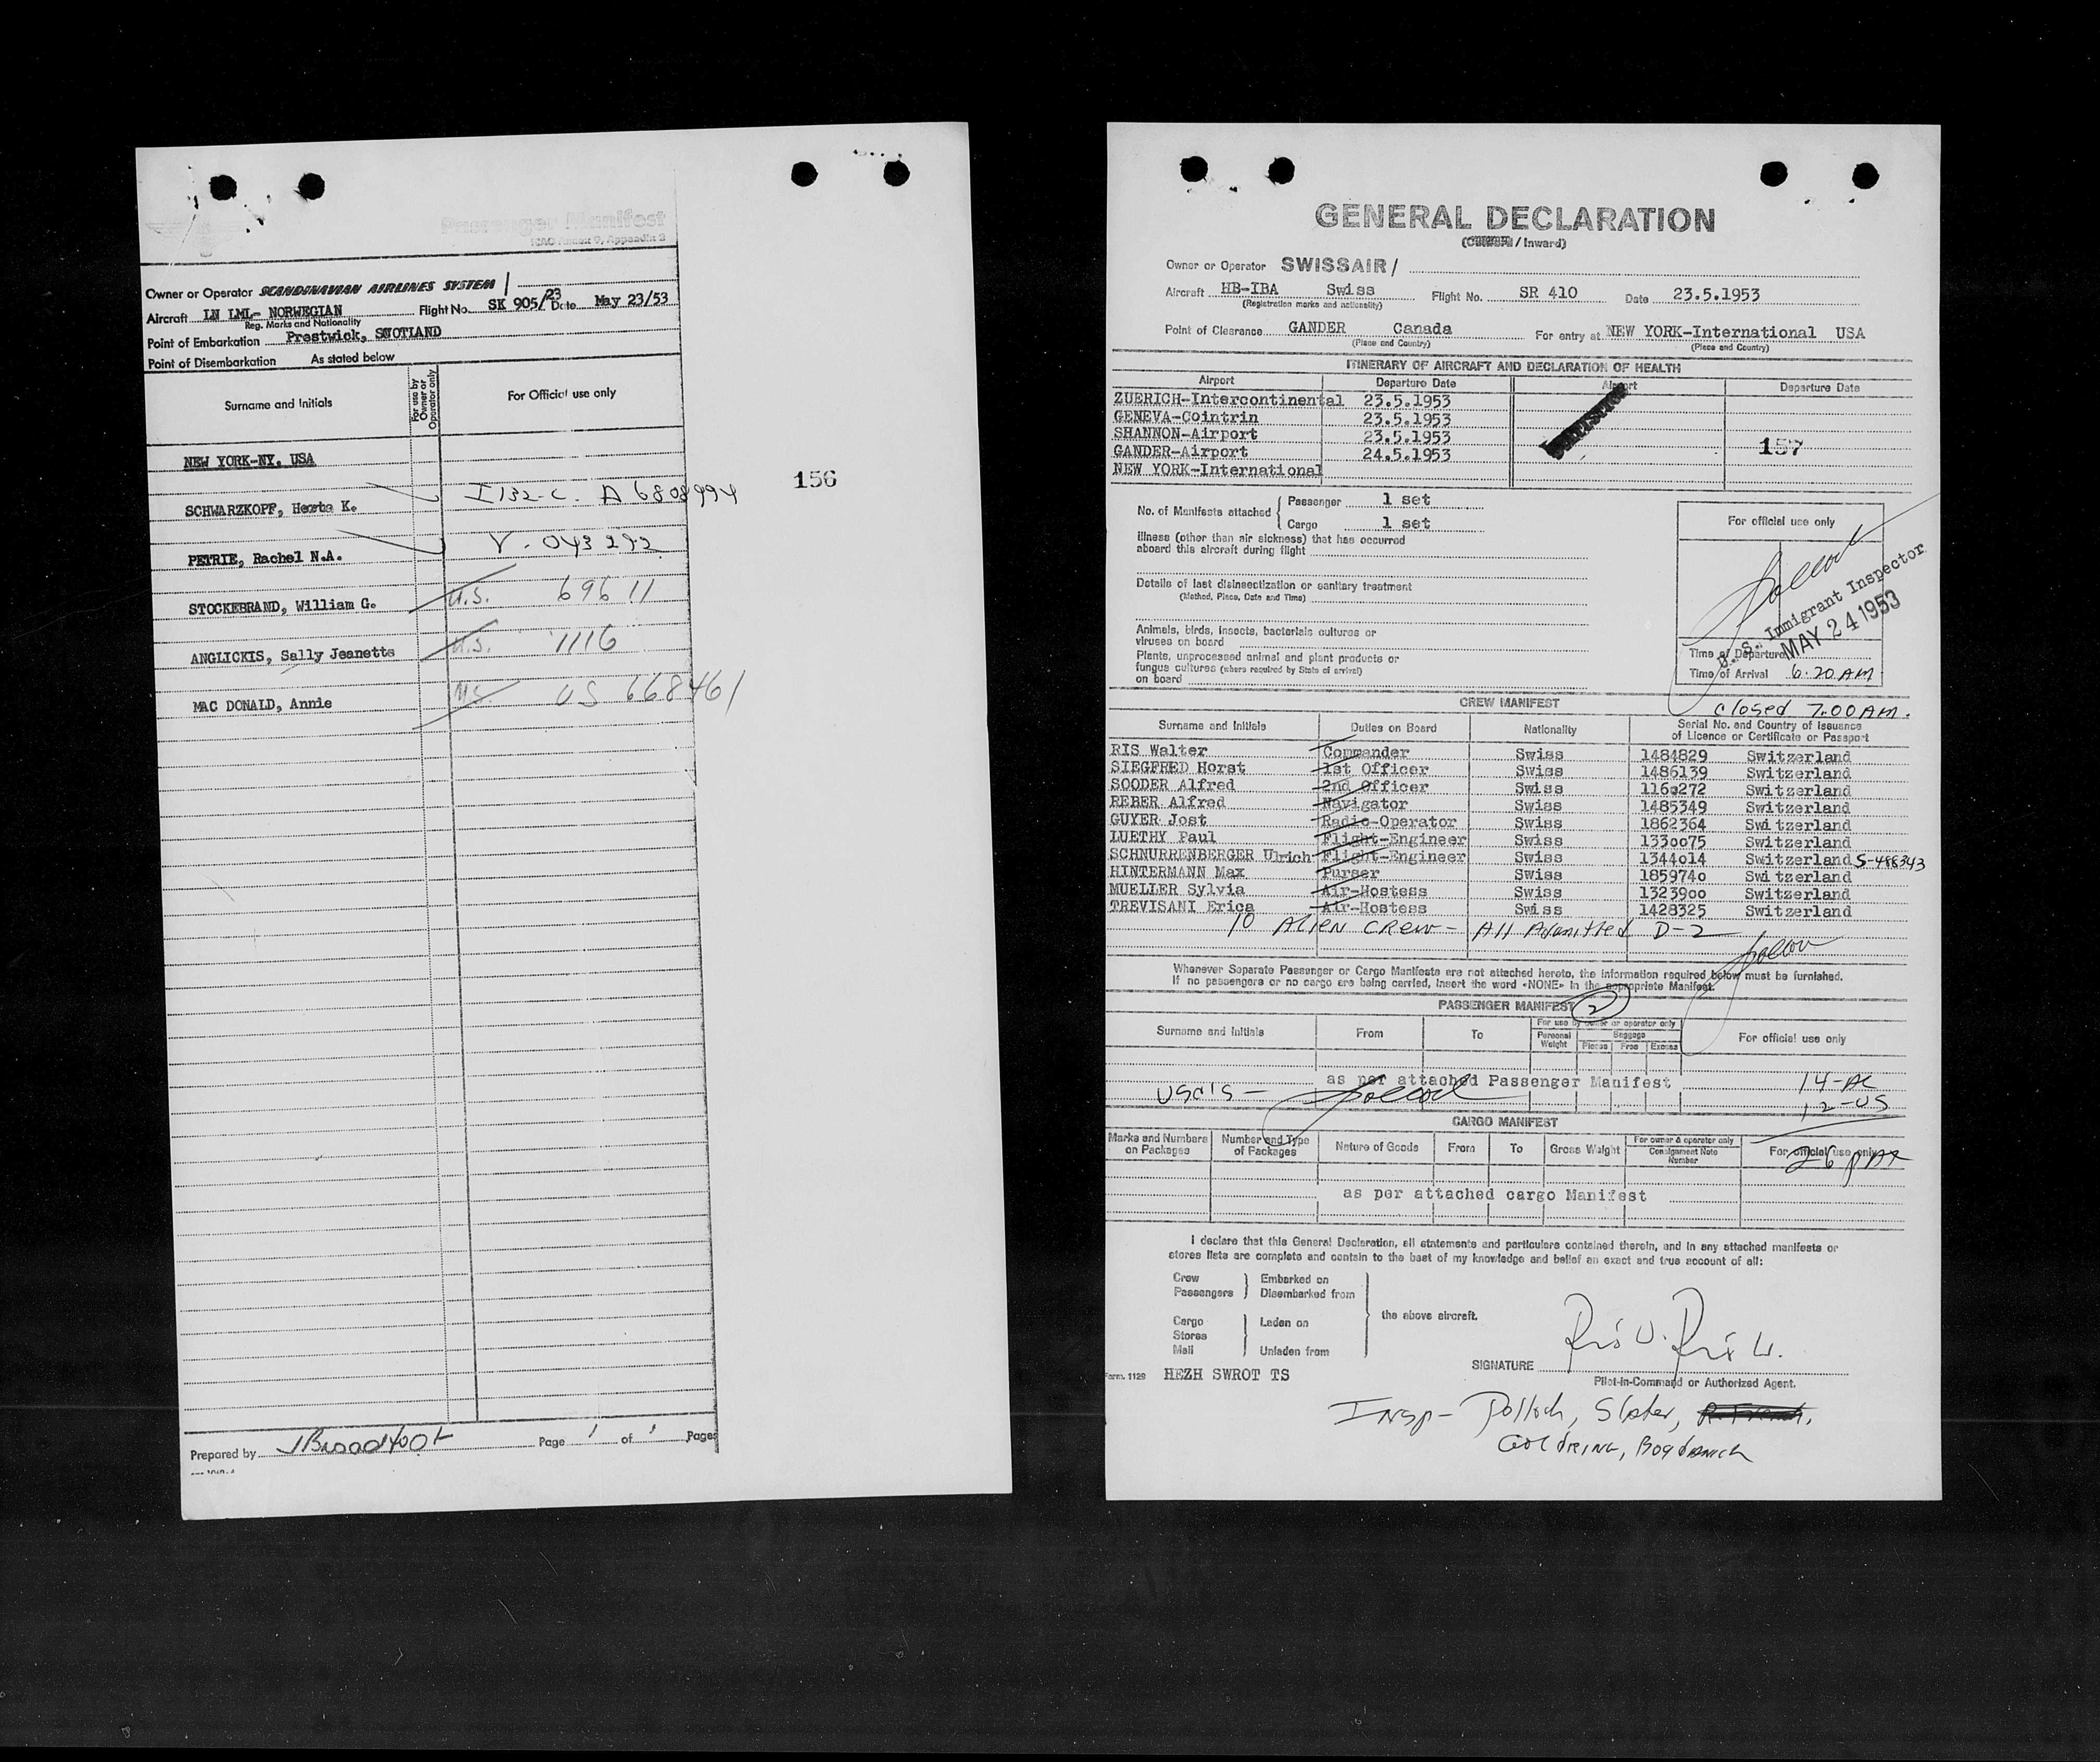 Passenger Manifest
ICAO Annex 9, Appendix 3
Owner or Operator SCANDINAVIAN AIRLINES SYSTEM /
Aircraft LN LML- NORWEGIAN Flight No. SK 905/23 Date May 23/53
Reg. Marks and Nationality
Point of Embarkation Prestwick, SNOTIAND
Point of Disembarkation As stated below
Surname and Initials For use by Owner or Operator only For Official use only
NEW YORK-NY. USA
156
SCHWARZKOPF, Herta K. I 132-C. A 6808994
PETRIE, Rachel N.A. V-043292
STOCKEBRAND, William G. U.S. 69611
ANGLICKIS, Sally Jeanette U.S. 1116
MAC DONALD, Annie US 668461
Prepared by JBroadfoot Page 1 of 1 Pages
GENERAL DECLARATION
(Outward / Inward)
Owner or Operator SWISSAIR /
Aircraft HB-IBA Swiss Flight No. SR 410 Date 23.5.1953
(Registration marks and nationality)
Point of Clearance GANDER Canada For entry at NEW YORK-International USA
(Place and Country) (Place and Country)
ITINERARY OF AIRCRAFT AND DECLARATION OF HEALTH
Airport Departure Date Airport Departure Date
ZUERICH-Intercontinental 23.5.1953
GENEVA-Cointrin 23.5.1953
SHANNON-Airport 23.5.1953
157
GANDER-Airport 24.5.1953
NEW YORK-International
No. of Manifests attached { Passenger 1 set
Cargo 1 set
For official use only
Illness (other than air sickness) that has occurred
aboard this aircraft during flight
Details of last disinsectization or sanitary treatment
(Method, Place, Date and Time)
Animals, birds, insects, bacterials cultures or
viruses on board
Plants, unprocessed animal and plant products or
fungus cultures (where required by State of arrival)
on board
U. S. Immigrant Inspector
MAY 24 1953
Time of Departure
Time of Arrival 6:20 AM
closed 7:00 AM.
CREW MANIFEST
Surname and Initials Duties on Board Nationality Serial No. and Country of Issuance
of Licence or Certificate or Passport
RIS Walter Commander Swiss 1484829 Switzerland
SIEGFRED Horst 1st Officer Swiss 1486139 Switzerland
SOODER Alfred 2nd Officer Swiss 1160272 Switzerland
REBER Alfred Navigator Swiss 1485349 Switzerland
GUYER Jost Radio-Operator Swiss 1862364 Switzerland
LUETHY Paul Flight-Engineer Swiss 1330075 Switzerland
SCHNURRENBERGER Ulrich Flight-Engineer Swiss 1344014 Switzerland S-488343
HINTERMANN Max Purser Swiss 1859740 Switzerland
MUELLER Sylvia Air-Hostess Swiss 1323900 Switzerland
TREVISANI Erica Air-Hostess Swiss 1428325 Switzerland
10 Alien Crew - All Admitted D-2
Whenever Separate Passenger or Cargo Manifests are not attached hereto, the information required below must be furnished.
If no passengers or no cargo are being carried, insert the word «NONE» in the appropriate Manifest.
PASSENGER MANIFEST 2
Surname and Initials From To For use by owner or operator only For official use only
Personal Weight Baggage
Pieces Free Excess
as per attached Passenger Manifest 14-AL
USC'S - Pollock 12-US
CARGO MANIFEST
Marks and Numbers on Packages Number and Type of Packages Nature of Goods From To Gross Weight For owner & operator only Consignment Note Number For official use only
26 PAX
as per attached cargo Manifest
I declare that this General Declaration, all statements and particulars contained therein, and in any attached manifests or
stores lists are complete and contain to the best of my knowledge and belief an exact and true account of all:
Crew Passengers } Embarked on Disembarked from
the above aircraft.
Cargo Stores Mail } Laden on Unladen from
SIGNATURE Ris W. Ris W.
Pilot-in-Command or Authorized Agent.
Form. 1129 HEZH SWROT TS
Insp- Pollock, Slater,
Goldring, Bogdanich